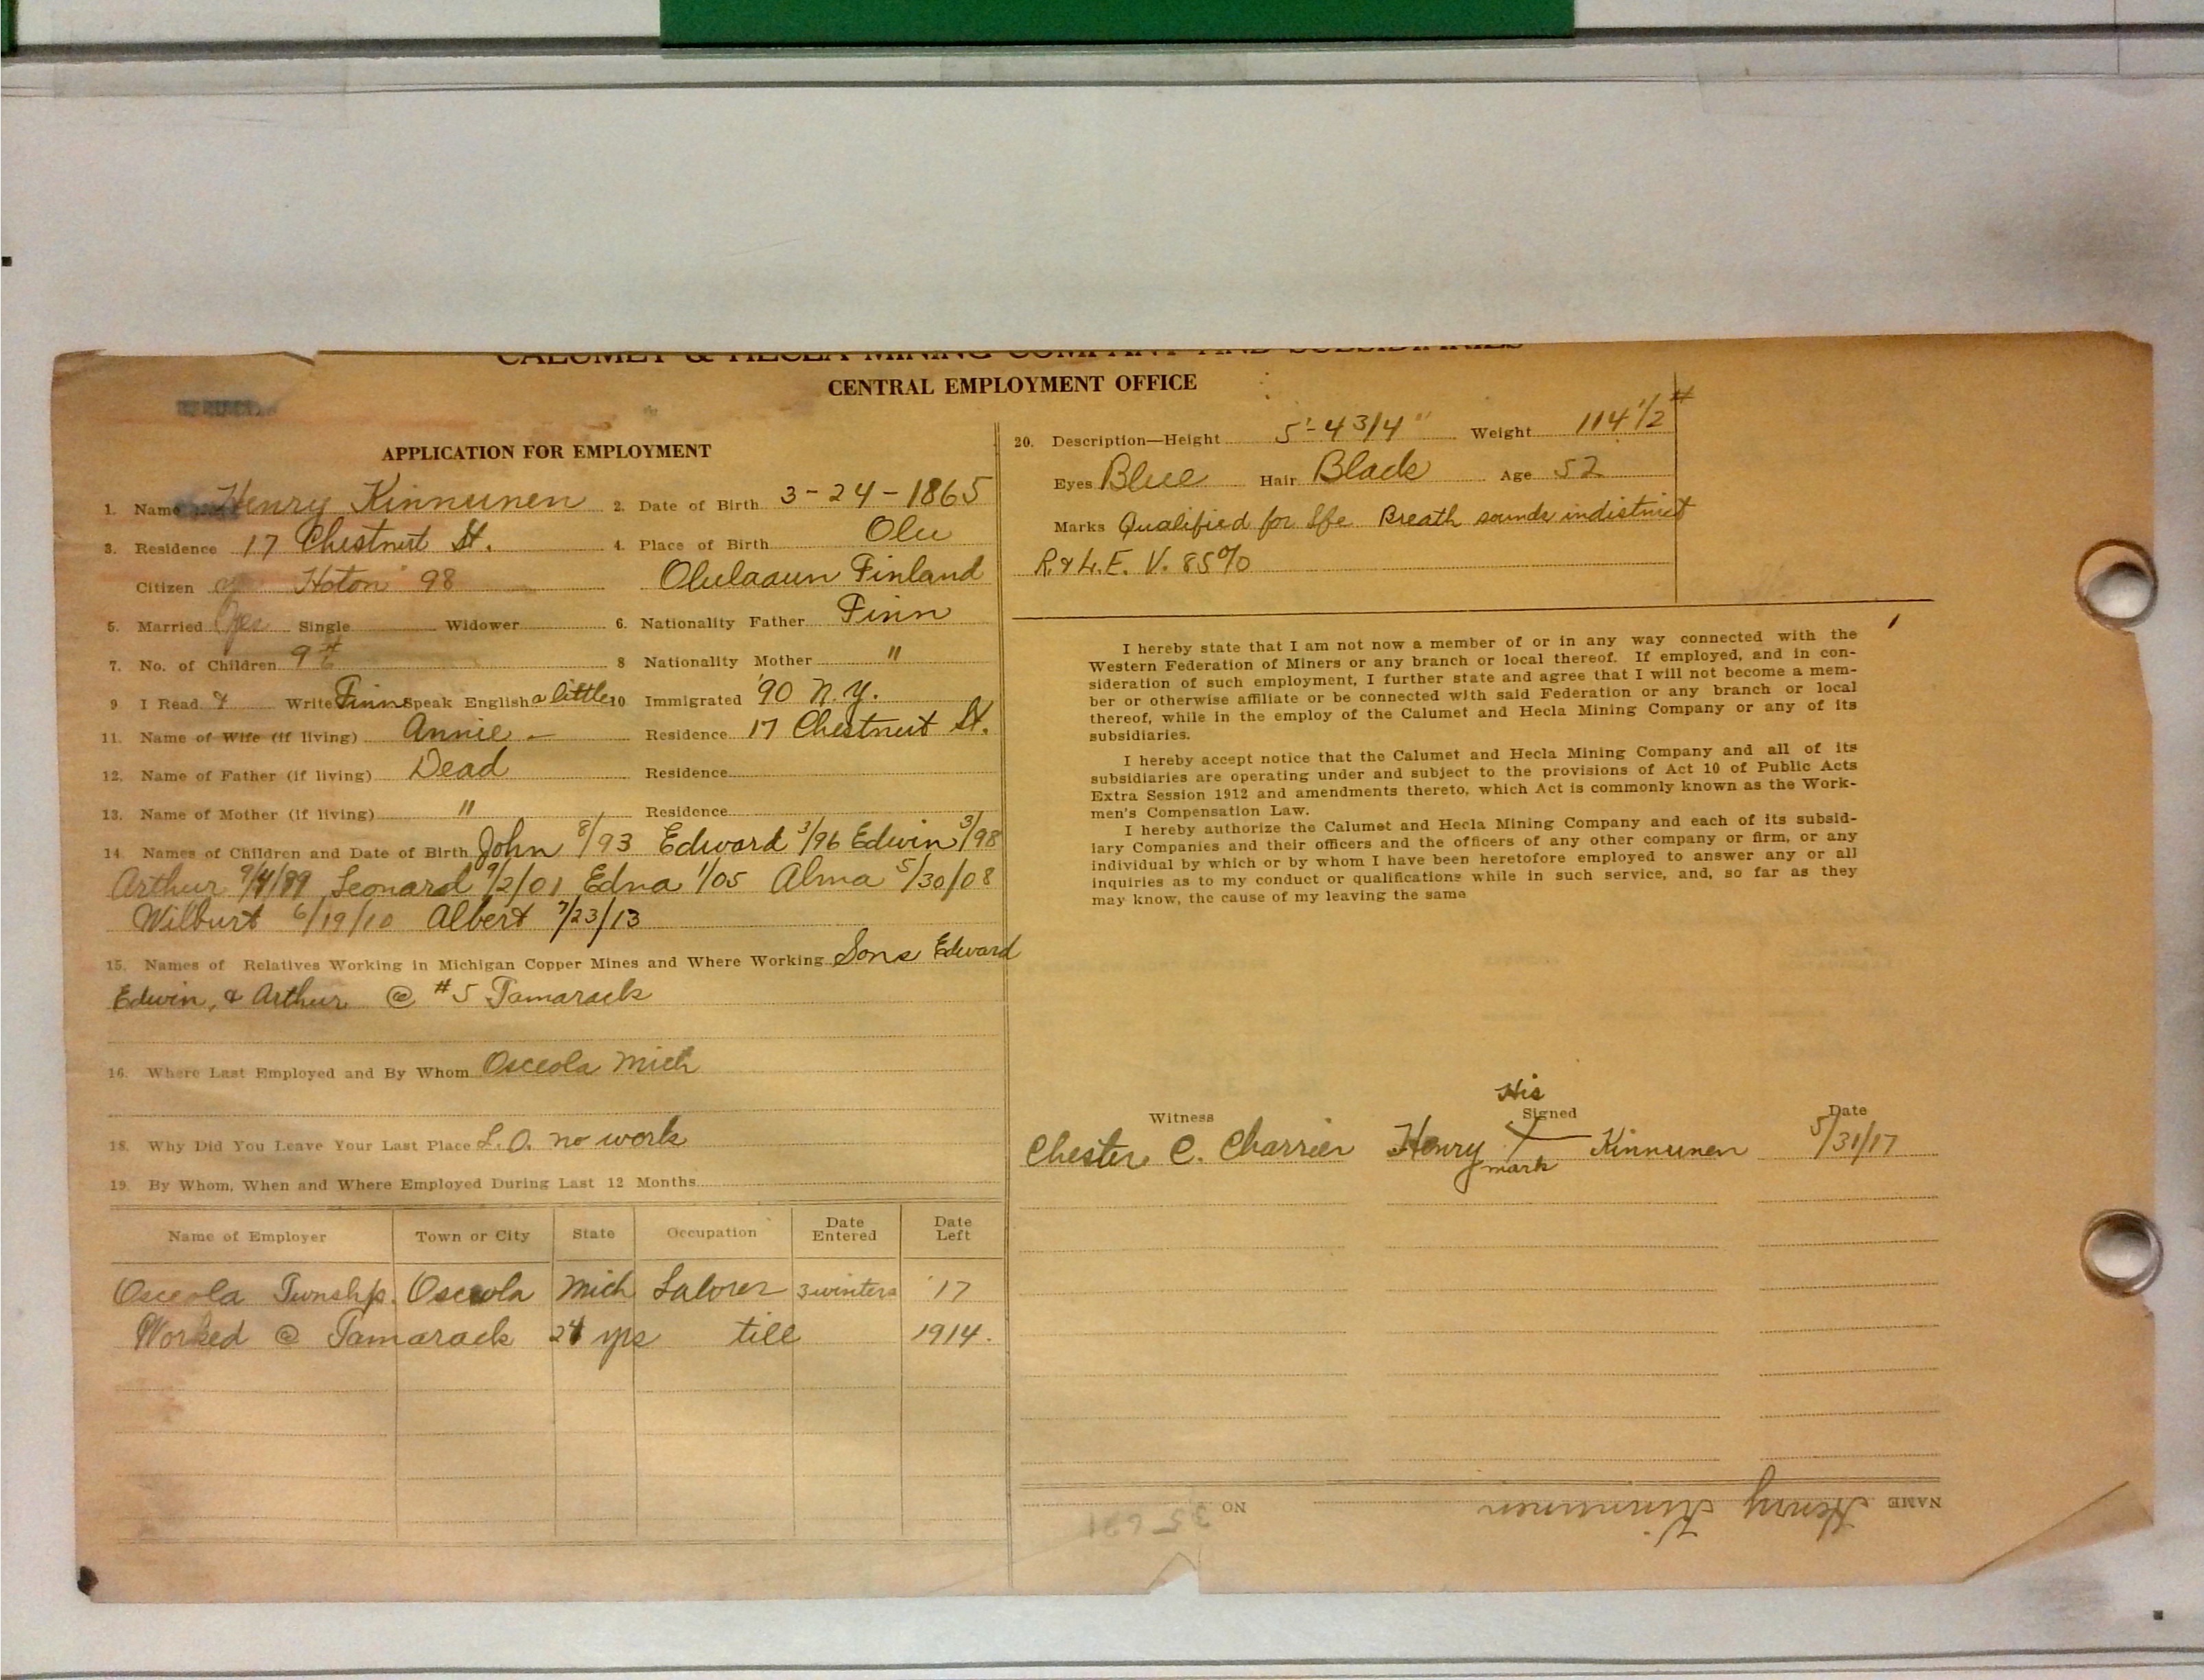 CALUMET & HECLA MINING COMPANY AND SUBSIDIARIES
CENTRAL EMPLOYMENT OFFICE
APPLICATION FOR EMPLOYMENT
1. Name Henry Kinnunen 2. Date of Birth 3-24-1865
3. Residence 17 Chestnut St. 4. Place of Birth Olu
Citizen Hoton 98 Olulaaun Finland
5. Married Yes Single Widower 6. Nationality Father Finn
7. No. of Children 9 8 Nationality Mother "
9 I Read & Write Finn Speak English a little 10 Immigrated '90 N.Y.
11. Name of Wife (if living) Annie - Residence 17 Chestnut St.
12. Name of Father (if living) Dead Residence
13. Name of Mother (if living) " Residence
14. Names of Children and Date of Birth John 8/93 Edward 3/96 Edwin 3/98
Arthur 9/4/99 Leonard 9/2/01 Edna 1/05 Alma 5/30/08
Wilburt 6/19/10 Albert 7/23/13
15. Names of Relatives Working in Michigan Copper Mines and Where Working Sons Edward
Edwin, & Arthur @ #5 Tamarack
16. Where Last Employed and By Whom Osceola Mich
18. Why Did You Leave Your Last Place L.O. no work
19. By Whom, When and Where Employed During Last 12 Months
Name of Employer Town or City State Occupation Date Entered Date Left
Osceola Twnshp. Osceola Mich Laborer 3 winters '17
Worked @ Tamarack 24 yrs till 1914.
20. Description—Height 5'-4 3/4" Weight 114 1/2 #
Eyes Blue Hair Black Age 52
Marks Qualified for Sfe Breath sounds indistinct
R. & L. E. V. 85%
I hereby state that I am not now a member of or in any way connected with the
Western Federation of Miners or any branch or local thereof. If employed, and in con-
sideration of such employment, I further state and agree that I will not become a mem-
ber or otherwise affiliate or be connected with said Federation or any branch or local
thereof, while in the employ of the Calumet and Hecla Mining Company or any of its
subsidiaries.
I hereby accept notice that the Calumet and Hecla Mining Company and all of its
subsidiaries are operating under and subject to the provisions of Act 10 of Public Acts
Extra Session 1912 and amendments thereto, which Act is commonly known as the Work-
men's Compensation Law.
I hereby authorize the Calumet and Hecla Mining Company and each of its subsid-
iary Companies and their officers and the officers of any other company or firm, or any
individual by which or by whom I have been heretofore employed to answer any or all
inquiries as to my conduct or qualifications while in such service, and, so far as they
may know, the cause of my leaving the same
His
Witness Signed Date
Chester C. Charrier Henry X Kinnunen 5/31/17
mark
NAME Henry Kinnunen NO 35621